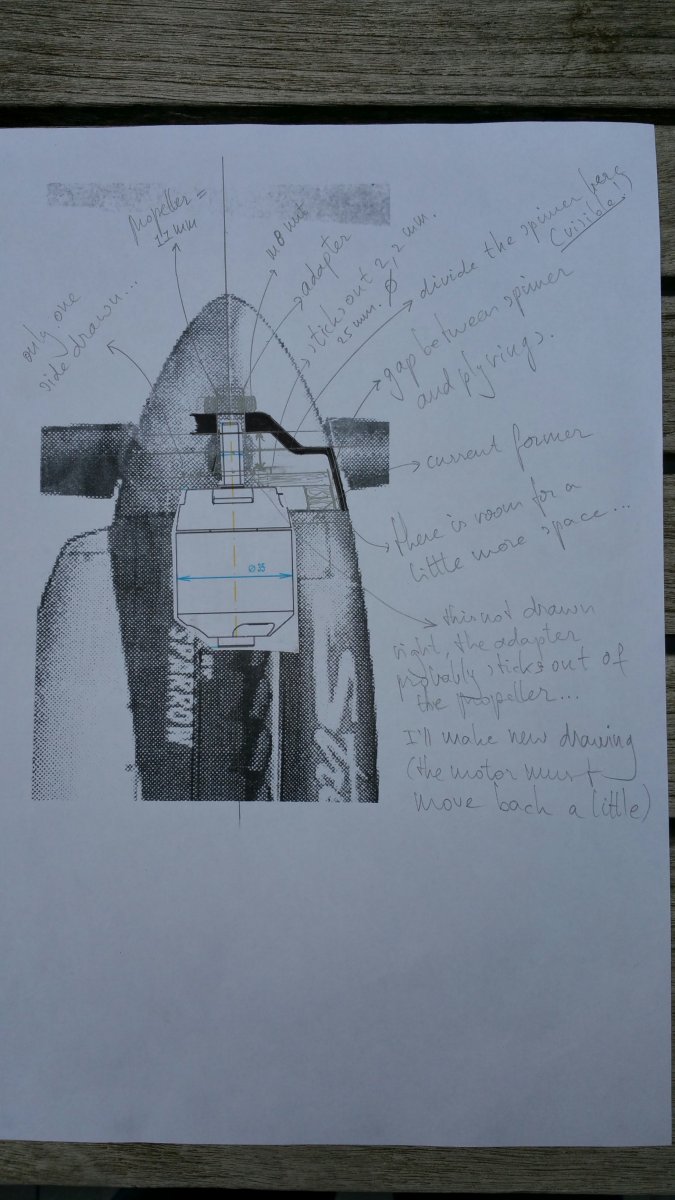 Propeller =
11 mm
only one
side drawn...
M8 nut
adapter
sticks out 2,2 mm.
25 mm. Ø
divide the spinner here
(visible!)
gap between spinner
and plyrings.
current former
there is room for a
little more space...
this not drawn
right, the adapter
probably sticks out of
the propeller...
I'll make new drawing
(the motor must
move back a little)
Ø 35